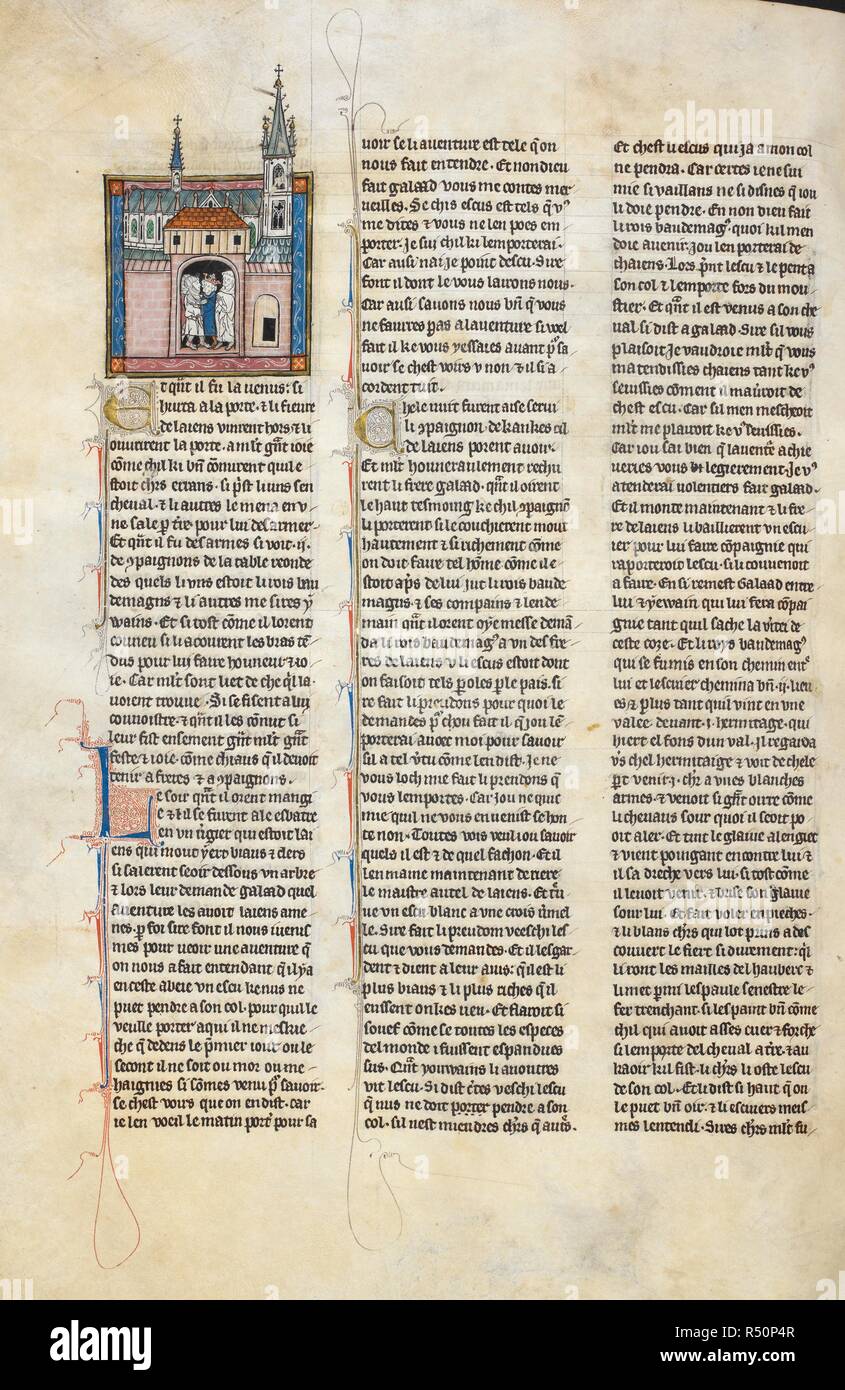 Et qñt il fu la uenus: si
hurta a la porte · ⁊ li frere
de laiens vinrent hors ⁊ li
ouurirent la porte · a mlt̃ gñt ioie
cõme chil ki bñ conurent quil e
stoit chr̃s errans · si pr̃st li uns sen
cheual · ⁊ li autres le mena en v
ne sale p̱ tr̃e · pour lui desarmer ·
Et qñt il fu desarmes si voit · ij ·
de ꝯpaignons de la table reonde
des quels li vns estoit li rois bau
demagus ⁊ li autres me sires y̾
wains · Et si tost cõme il lorent
couneu si li acourent les bras tẽ
dus pour lui faire honneur ⁊ io
ie · Car mlt̃ sont liet de che q̃l la
uoient trouue · Si se fisent a lui
counoistre · ⁊ qñt il les cõnut si
leur fist ensement gñt mlt̃ gñt
feste ⁊ ioie · cõme chiaus q̃l deuoit
tenir a freres ⁊ a ꝯpaignons ·
Le soir qñt il orent mangi
e ⁊ il se furent ale esbatre
en vn ṽgier qui estoit lai
ens qui mout ỹert biaus ⁊ clers
si salerent seoir dessous vn arbre
⁊ lors leur demande galaad quel
auenture les auoit laiens ame
nes · p̱ foi sire font il nous uenis
mes pour ueoir vne auenture q̃
on nous a fait entendant · q̃l i ya
en ceste abeie vn escu ke nus ne
puet pendre a son col · pour quil le
veuille porter
che q̃ dedens le p̃mier iour ou le
secont il ne soit ou mor ou me
haignies si sõmes venu pr̃ sauoir ·
se chest voirs que on en dist · car
ie len voeil le matin port̾ pour sa
uoir se li auenture est tele q̃ on
nous fait entendre · Et non dieu
fait galaad vous me contes mer
ueilles · Se chis escus est tels q̃ v⁹
me dites ⁊ vous ne len poes em
porter · Je sui chil ki lemporterai ·
Car ausi nai je point descu · Sire
font il dont le vous lairons nous ·
Car ausi sauons nous bñ q̃ vous
ne faurres pas a lauenture si voel
fait il ke vous y essaies auant pr̃ sa
uoir se chest voirs v non ⁊ il si a
cordent tuit ·
Chele nuit furent aise serui
li ꝯpaignon · de kankes cil
de laiens porent auoir ·
Et mlt̃ houneraulement rechu
rent li frere galaad · qñt il oirent
le haut tesmoing ke chil ꝯpaignõ
li porterent si le couchierent mout
hautement ⁊ si richement cõme
on doit faire tel hõme cõme il e
stoit ap̃s de lui jut li rois baude
magus · ⁊ ses compains ⁊ lende
main qñt il orent oye messe demã
da li rois baudemag⁹ a vn des fre
res de laiens v li escus estoit dont
on faisoit tels p̱oles p̱ le pais · si
re fait li preudons pour quoi le
demandes pr̃ chou fait il q̃ iou lẽ
porterai auoec moi pour sauoir
sil a tel ṽtu cõme len dist · Je ne
vous loch mie fait li prendons q̃
vous lemportes · Car jou ne quic
mie quil ne vous en uenist se hon
te non · Toutes voies veul iou sauoir
quels il est ⁊ de quel fachon · Et il
len maine maintenant derriere
le maistre autel de laiens · Et tr̃u
ue vn escu blanc a vne crois ṽmel
le · Sire fait li preudom veeschi les
cu que vous demandes · Et il lesgar
dent ⁊ dient a leur auis: q̃l est li
plus biaus ⁊ li plus riches q̃l
eussent onkes ueu · Et flairoit si
souef cõme se toutes les especes
del monde i fuissent espandues
sus · Qñt ywains li auoutres
vit lescu · Si dist c̃tes veschi lescu
q̃ nus ne doit porter pendre a son
col · sil nest miendres chr̃s q̃ aut̃s ·
Et chest li escus qui ja a mon col
ne pendra · Car certes ie ne sui
mie si vaillans ne si dignes q̃ iou
li doie pendre · En non dieu fait
li rois baudemag⁹ · quoi kil men
doie auenir · Jou len porterai de
chaiens · Lors pr̃nt lescu ⁊ le pent a
son col ⁊ lemporte fors du mou
stier · Et qñt il est venus a son che
ual si dist a galaad · Sire sil vous
plaisoit Je vaudroie mlt̃ q̃ vous
matendissies chaiens tant ke v⁹
seussies cõment il mauroit de
chest escu · Car sil men mescheoit
mlt̃ me plairoit ke v⁹ seussies ·
Car iou sai bien q̃ lauentr̃e achie
ueries vous bi legierement · Je v⁹
atenderai volentiers fait galaad ·
Et il monte maintenant ⁊ li fre
re de laiens li baillierent vn escu
ier pour lui faire cõpaignie qui
raporteroit lescu · si li couuenoit
a faire · En si remest Galaad entre
lui ⁊ ywain qui lui fera cõpai
gnie tant quil sache la ṽitei de
ceste coze · Et li roys baudemag⁹
qui se fu mis en son chemin ent̃
lui ⁊ lescuier chemina bñ · ij · lieu
es ⁊ plus tant quil vint en vne
valee deuant · j · hermitage · qui
hiert el fons dun val · Il regarda
ṽs chel hermitaige ⁊ voit de chele
p̱t venir · j · chr̃ a vnes blanches
armes · ⁊ venoit si gñt oirre cõme
li cheuaus sour quoi il seoit po
oit aler · Et tint le glaiue alengiet
⁊ vient poingant encontre lui ⁊
il sa dreche vers lui · si tost cõme
il le voit venir · ⁊ brise son glaiue
sour lui · Et fait voler en pieches ·
⁊ li blans chr̃s qui lot pruis a des
couuert le fiert si durement: qil
li ront les mailles del hauberc ⁊
li met pr̃mi lespaule senestre le
fer trenchant · si les paint bñ cõme
chil qui auoit asses cuer ⁊ forche
si lemporte del cheual a tr̃e · ⁊ au
kaoir kil fist · li chr̃s li oste lescu
de son col · Et li dist si haut q̃ on
le puet bñ oir · ⁊ li escuiers meis
mes lentendi · Sires chr̃s mlt̃ fu
alamy
Image ID: R50P4R
www.alamy.com